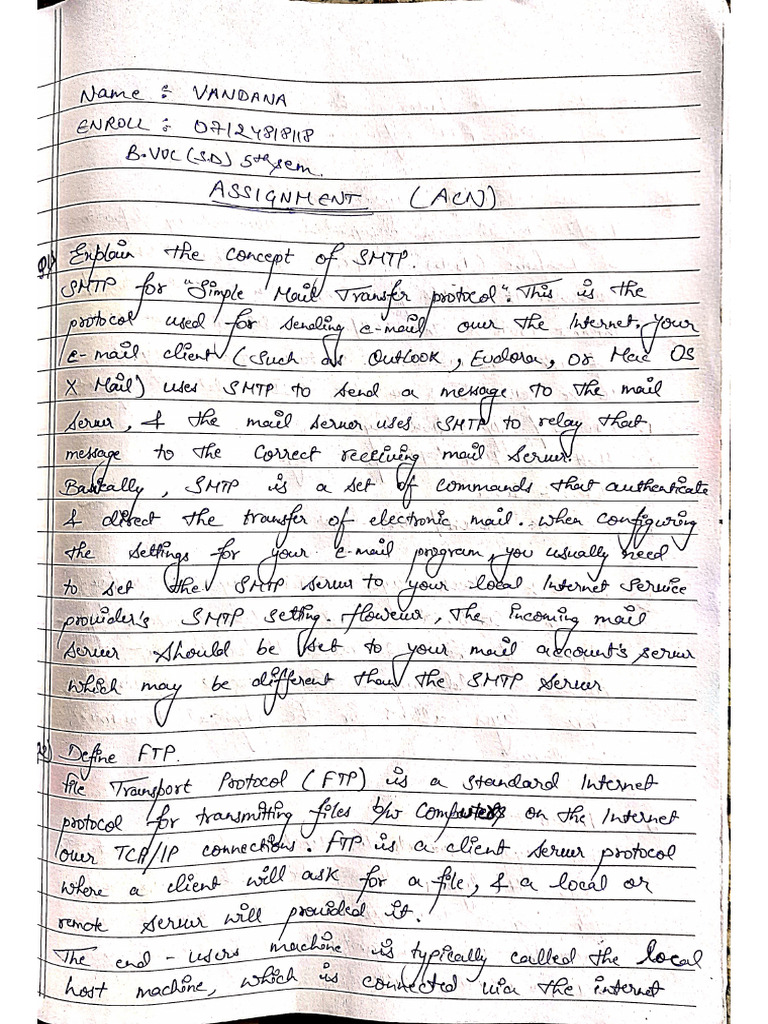 Name : VANDANA
ENROLL : 07124818118
B.VOC (S.D) 5th sem
ASSIGNMENT (ACN)
Q1) Explain the concept of SMTP.
SMTP for "Simple Mail Transfer protocol". This is the
protocol used for sending e-mail over the Internet. Your
e-mail client (Such as Outlook, Eudora, or Mac OS
X Mail) uses SMTP to send a message to the mail
Server, & the mail server uses SMTP to relay that
message to the correct receiving mail server.
Basically, SMTP is a set of commands that authenticate
& direct the transfer of electronic mail. When configuring
the settings for your e-mail program, you usually need
to set the SMTP server to your local Internet Service
provider's SMTP setting. However, the incoming mail
server should be set to your mail account's server
which may be different than the SMTP server
Define FTP.
file Transport Protocol (FTP) is a standard Internet
protocol for transmitting files b/w Computers on the Internet
over TCP/IP connections. FTP is a client server protocol
where a client will ask for a file, & a local or
remote server will provided it.
The end-users machine is typically called the local
host machine, which is connected via the internet